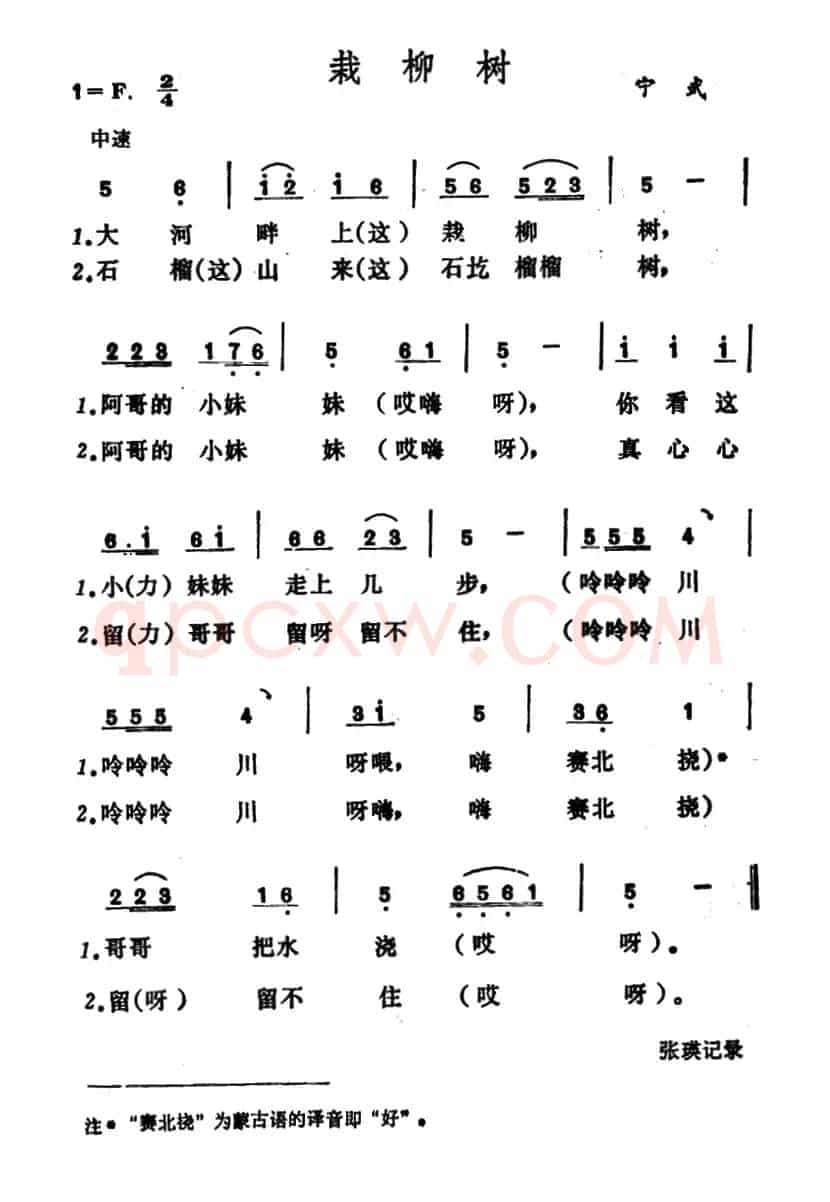 栽柳树
1=F. 2/4
宁武
中速
5 6 | i 2 i 6 | 5 6 5 2 3 | 5 — |
1.大 河 畔 上(这) 栽 柳 树,
2.石 榴(这)山 来(这) 石圪 榴榴 树,
2 2 3 1 7 6 | 5 6 1 | 5 — | i i i |
1.阿哥的 小妹 妹 (哎嗨 呀), 你 看 这
2.阿哥的 小妹 妹 (哎嗨 呀), 真 心 心
6. i 6 i | 6 6 2 3 | 5 — | 5 5 5 4 |
1.小(力) 妹妹 走上 几 步, (呤呤呤 川
2.留(力) 哥哥 留呀 留不 住, (呤呤呤 川
qpcxw.COM
5 5 5 4 | 3 i 5 | 3 6 1 |
1.呤呤呤 川 呀喂, 嗨 赛北 挠)*
2.呤呤呤 川 呀嗨, 嗨 赛北 挠)
2 2 3 1 6 | 5 6 5 6 1 | 5 — ‖
1.哥哥 把水 浇 (哎 呀)。
2.留(呀) 留不 住 (哎 呀)。
张瑛记录
注* “赛北挠”为蒙古语的译音即“好”。